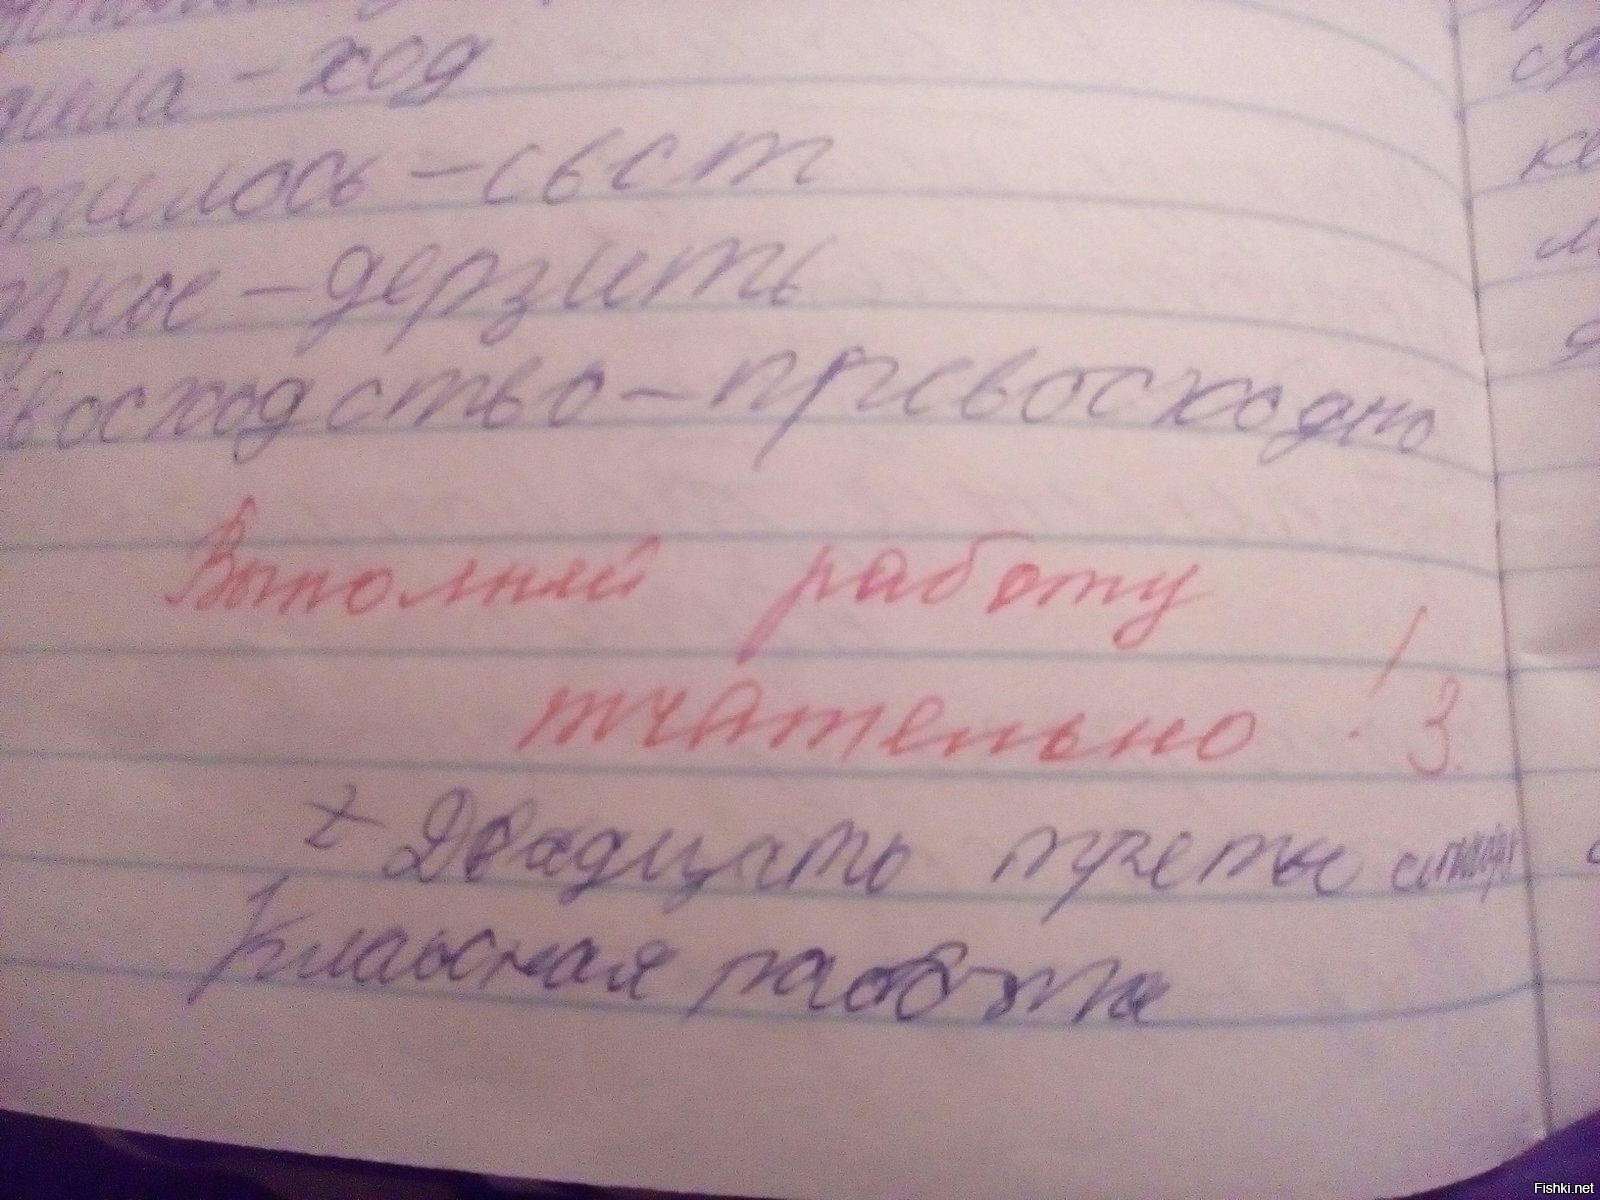 – ход
тилось – сьст
зкое – дерзить
восходство – превосходно
Выполняй работу
тчательно! 3.
Двадцать третье
Классная работа
Fishki.net